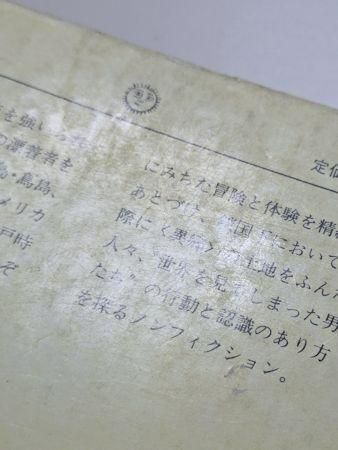 定価
を強いられ
の漂着者を
島・鳥島、
メリカ
戸時
ぞ
にみちた冒険と体験を精
あとづけ、鎖国下において
際に〈異域〉の土地をふん
人々、“世界を見てしまった男
たち”の行動と認識のあり方
を探るノンフィクション。